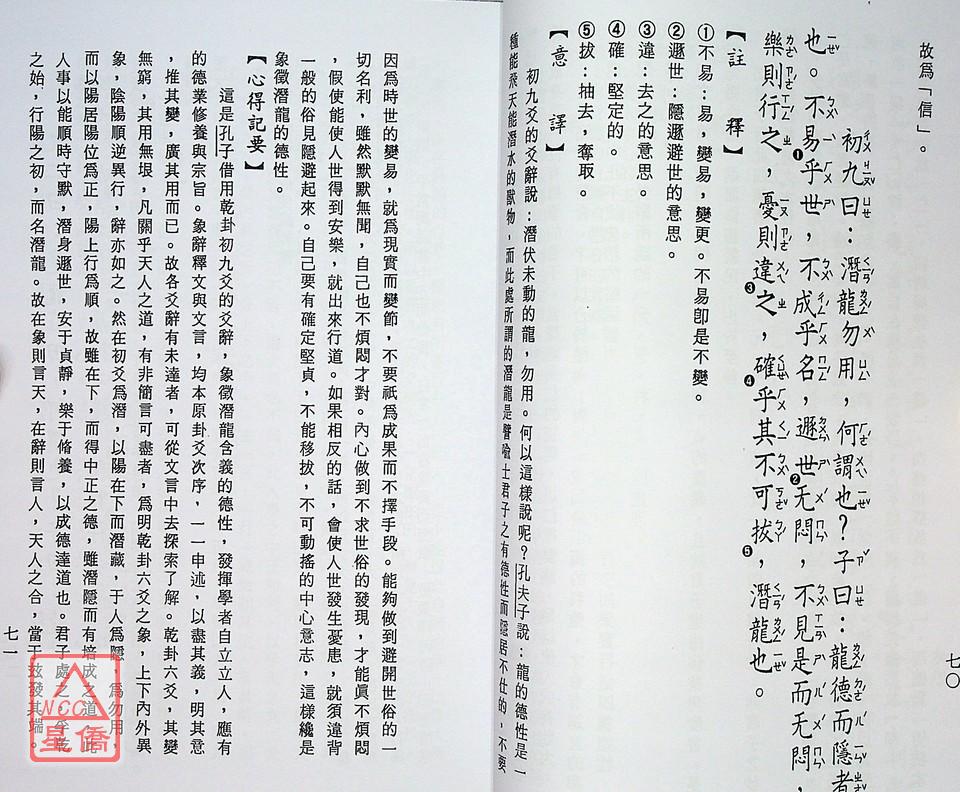 故爲「信」。
初九曰：潛龍勿用，何謂也？子曰：龍德而隱者
也。不易乎世，不成乎名，遯世无悶，不見是而无悶，
樂則行之，憂則違之，確乎其不可拔，潛龍也。
【註釋】
①不易：易，變易，變更。不易卽是不變。
②遯世：隱遯避世的意思。
③違：去之的意思。
④確：堅定的。
⑤拔：抽去，奪取。
【意譯】
初九爻的爻辭說：潛伏未動的龍，勿用。何以這樣說呢？孔夫子說：龍的德性是一
種能飛天能潛水的獸物，而此處所謂的潛龍是譬喩士君子之有德性而隱居不仕的，不要
七〇
因爲時世的變易，就爲現實而變節，不要祇爲成果而不擇手段。能夠做到避開世俗的一
切名利，雖然默默無聞，自己也不煩悶才對。內心做到不求世俗的發現，才能眞不煩悶
，假使能使人世得到安樂，就出來行道。如果相反的話，會使人世發生憂患，就須違背
一般的俗見隱避起來。自己要有確定堅貞，不能移拔，不可動搖的中心意志，這樣纔是
象徵潛龍的德性。
【心得記要】
這是孔子借用乾卦初九爻的爻辭，象徵潛龍含義的德性，發揮學者自立立人，應有
的德業修養與宗旨。象辭釋文與文言，均本原卦爻次序，一一申述，以盡其義，明其意
，推其變，廣其用而已。故各爻辭有未達者，可從文言中去探索了解。乾卦六爻，其變
無窮，其用無垠，凡關乎天人之道，有非簡言可盡者，爲明乾卦六爻之象，上下內外異
象，陰陽順逆異行，辭亦如之。然在初爻爲潛，以陽在下而潛藏，于人爲隱，爲勿用，
而以陽居陽位爲正，陽上行爲順，故雖在下，而得中正之德，雖潛隱而有培成之道。此
人事以能順時守默，潛身遯世，安于貞靜，樂于脩養，以成德達道也。君子處之，孚乾
之始，行陽之初，而名潛龍。故在象則言天，在辭則言人，天人之合，當于玆發其端。
七一
WCC
星僑